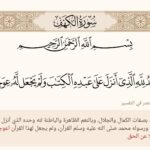 سُورَةُ الكَهْفِ
بِسْمِ اللَّهِ الرَّحْمَٰنِ الرَّحِيمِ
لِلَّهِ الَّذِي أَنزَلَ عَلَىٰ عَبْدِهِ الْكِتَٰبَ وَلَمْ يَجْعَل لَّهُ عِوَجَا
في التفسير
بصفات الكمال والجلال، وبالنعم الظاهرة والباطنة لله وحده الذي أنزل
ورسوله محمد صلى الله عليه وسلم القرآن، ولم يجعل لهذا القرآن
عن الحق